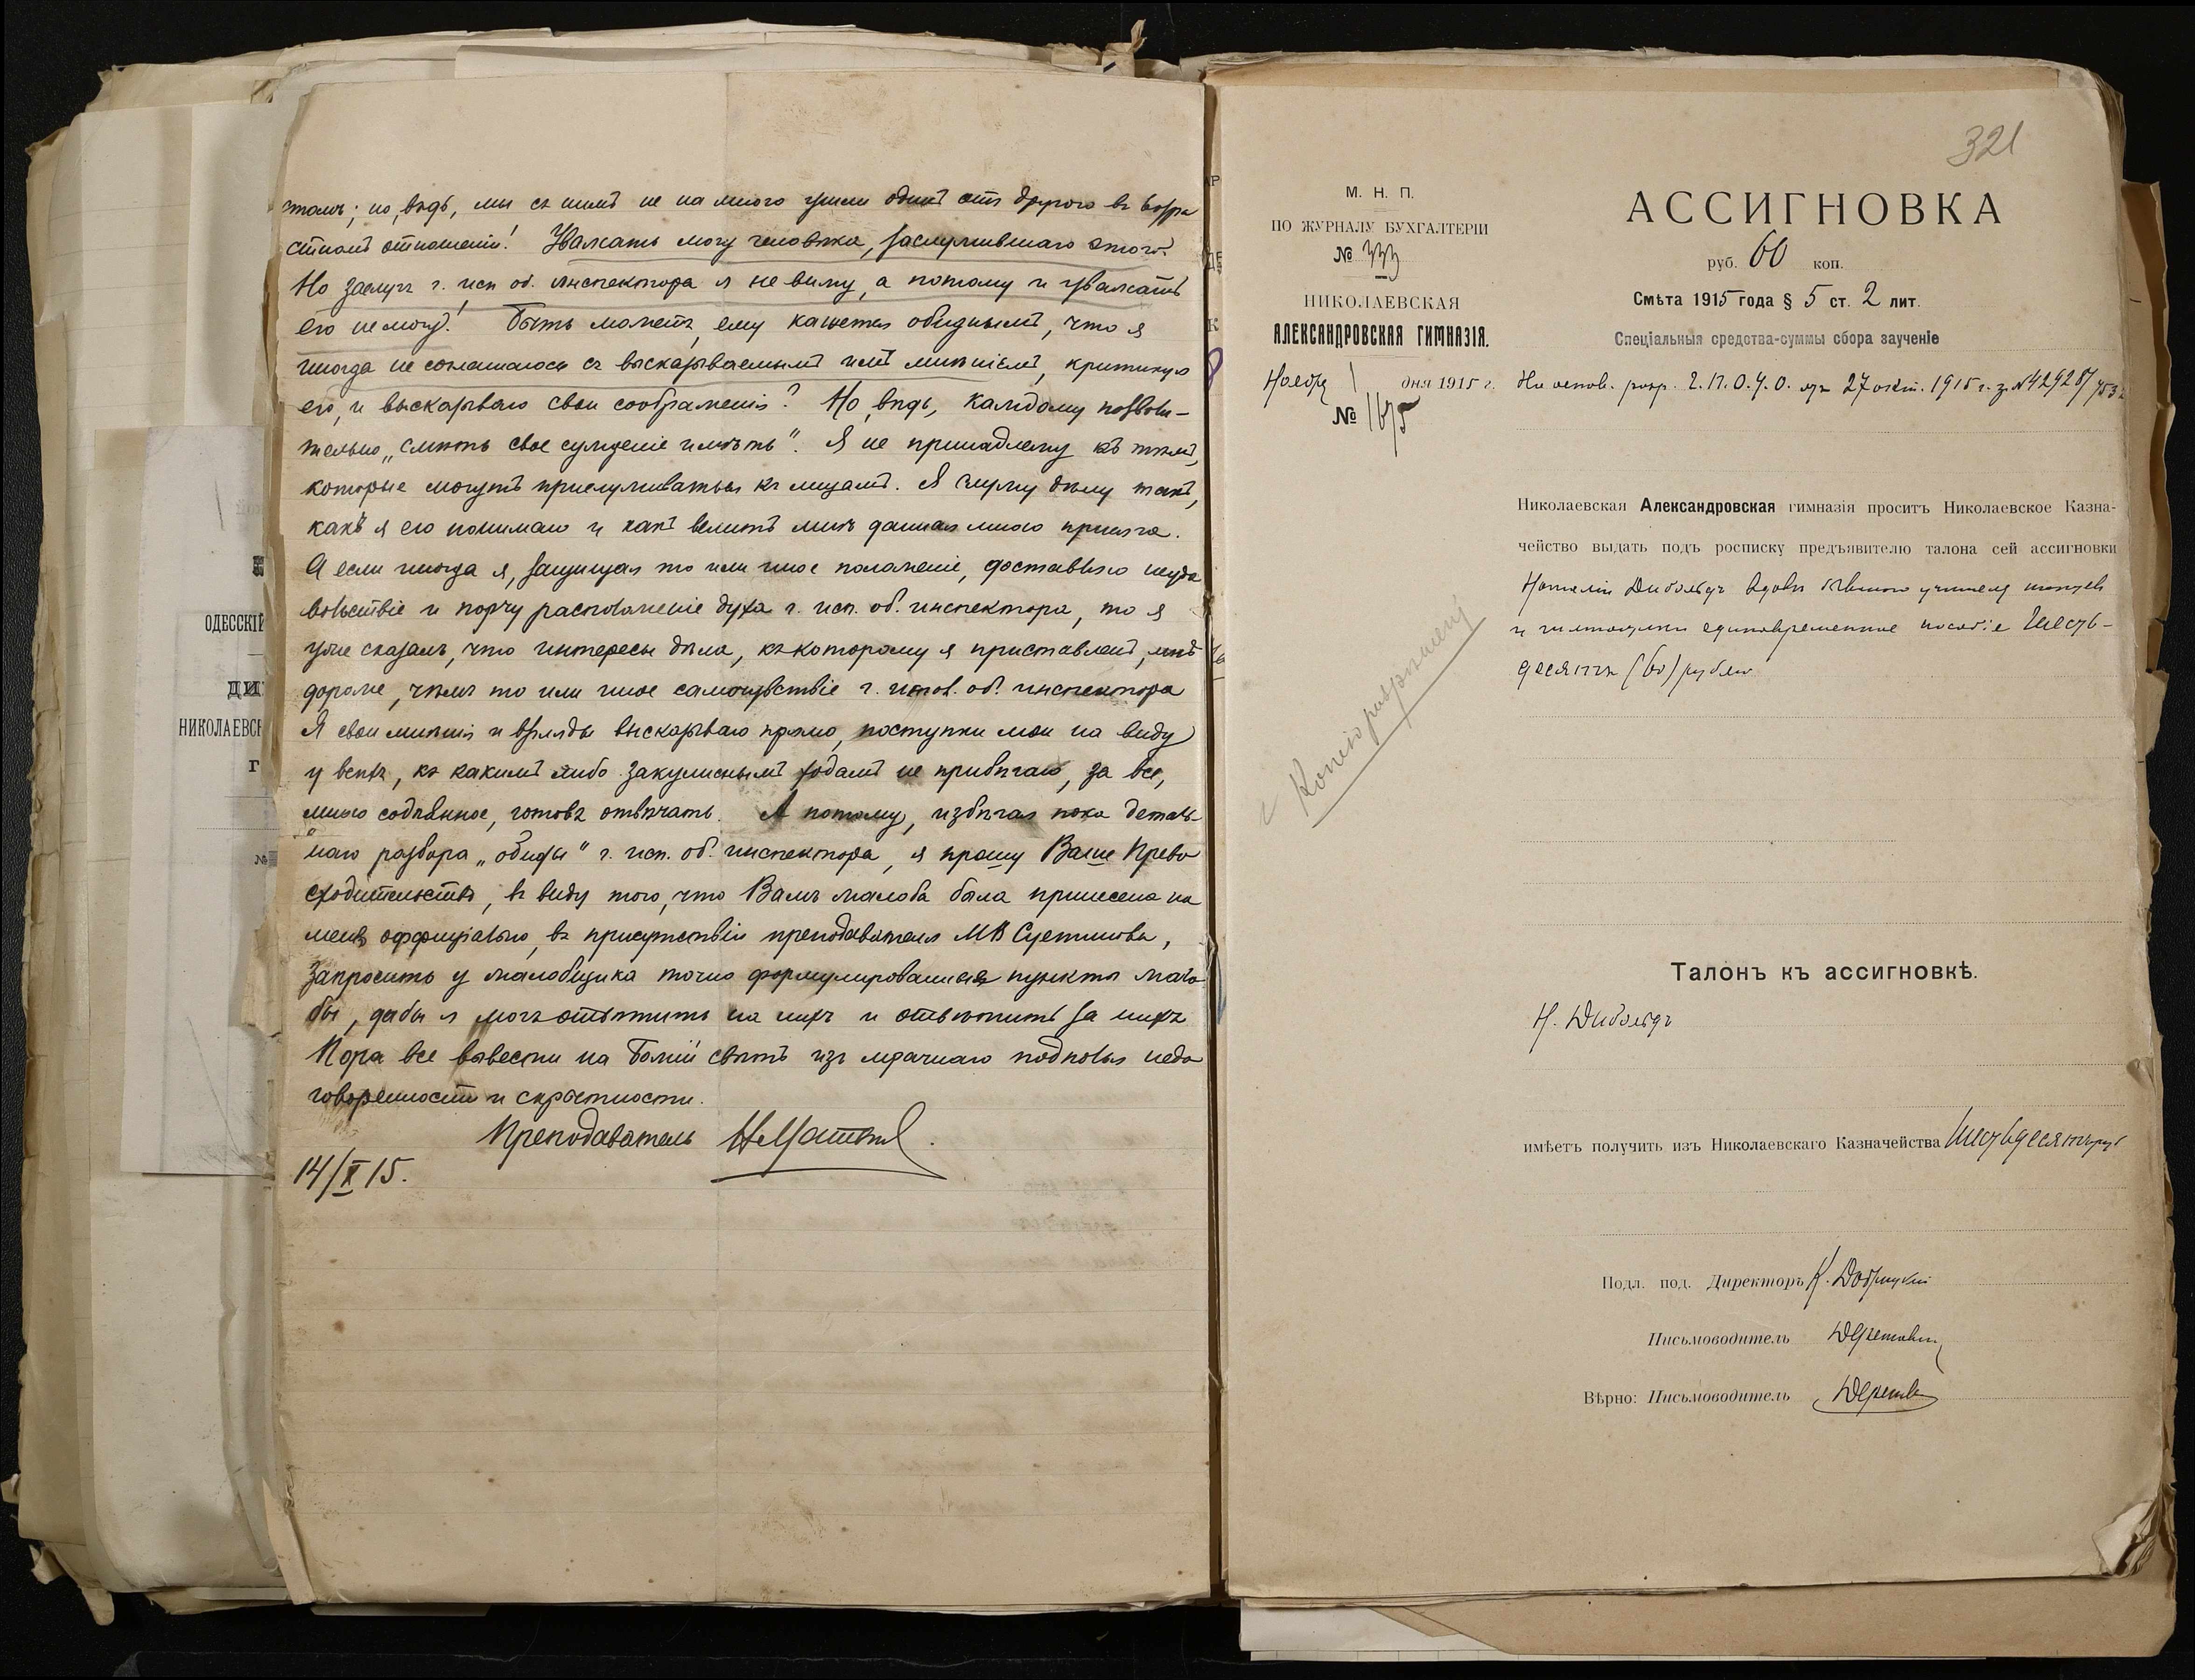 томъ; но, вѣдь, мы съ нимъ не на много ушли одинъ отъ другого въ возра
стномъ отношеніи! Уважать могу человѣка, заслужившаго этого.
Но заслугъ г. исп об. инспектора я не вижу, а потому и уважать
его не могу! Быть можетъ, ему кажется обиднымъ, что я
иногда не соглашаюсь съ высказываемымъ имъ мнѣніемъ, критикуя
его, и высказываю свои соображенія? Но, вѣдь, каждому позволи-
тельно „смѣть свое сужденіе имѣть“. Я не принадлежу къ тѣмъ,
которые могутъ прислуживаться къ лицамъ. Я служу дѣлу такъ,
какъ я его понимаю и какъ велитъ мнѣ данная мною присяга.
А если иногда я, защищая то или иное положеніе, доставляю неудо
вольствіе и порчу расположеніе духа г. исп. об. инспектора, то я
уже сказалъ, что интересы дѣла, къ которому я приставленъ, мнѣ
дороже, чѣмъ то или иное самочувствіе г. испол. об. инспектора
Я свои мнѣнія и взгляды высказываю прямо, поступки мои на виду
у всѣхъ, къ какимъ либо закулиснымъ ходамъ не прибѣгаю, за все,
мною содѣянное, готовъ отвѣчать. А потому, избѣгая пока деталь-
наго разбора „обиды“ г. исп. об. инспектора, я прошу Ваше Прево
сходительство, въ виду того, что Вамъ жалоба была принесена на
меня оффиціально, въ присутствіи преподавателя М В
запросить у жалобщика точно формулированные пункты жало
бы, дабы я могъ отвѣтить на нихъ и отвѣтить за нихъ
Пора все вывести на Божій свѣтъ изъ мрачнаго подполья недо
говоренности и скрытности.
Преподаватель
14/X 15.
321
М. Н. П.
ПО ЖУРНАЛУ БУХГАЛТЕРІИ
№ 333
НИКОЛАЕВСКАЯ
АЛЕКСАНДРОВСКАЯ ГИМНАЗІЯ.
Ноября 1 дня 1915 г.
№ 1675
Копію
АССИГНОВКА
руб. 60 коп.
Смѣта 1915 года § 5 ст. 2 лит.
Спеціальныя средства-суммы сбора заученіе
На основ. разр. Г. П. О. У. О. отъ 27 окт. 1915 г. за № 42928/
Николаевская Александровская гимназія проситъ Николаевское Казна-
чейство выдать подъ росписку предъявителю талона сей ассигновки
Наталіи Дибольдъ вдовѣ бывшаго учителя танцевъ
и гимнастики единовременное пособіе Шесть-
десятъ (60) рублей
Талонъ къ ассигновкѣ.
Н. Дибольдъ
имѣетъ получить изъ Николаевскаго Казначейства Шестьдесятъ руб
Подл. под. Директоръ К.
Письмоводитель
Вѣрно: Письмоводитель
ОДЕССКІЙ
ДИ
НИКОЛАЕВСК
Г
№